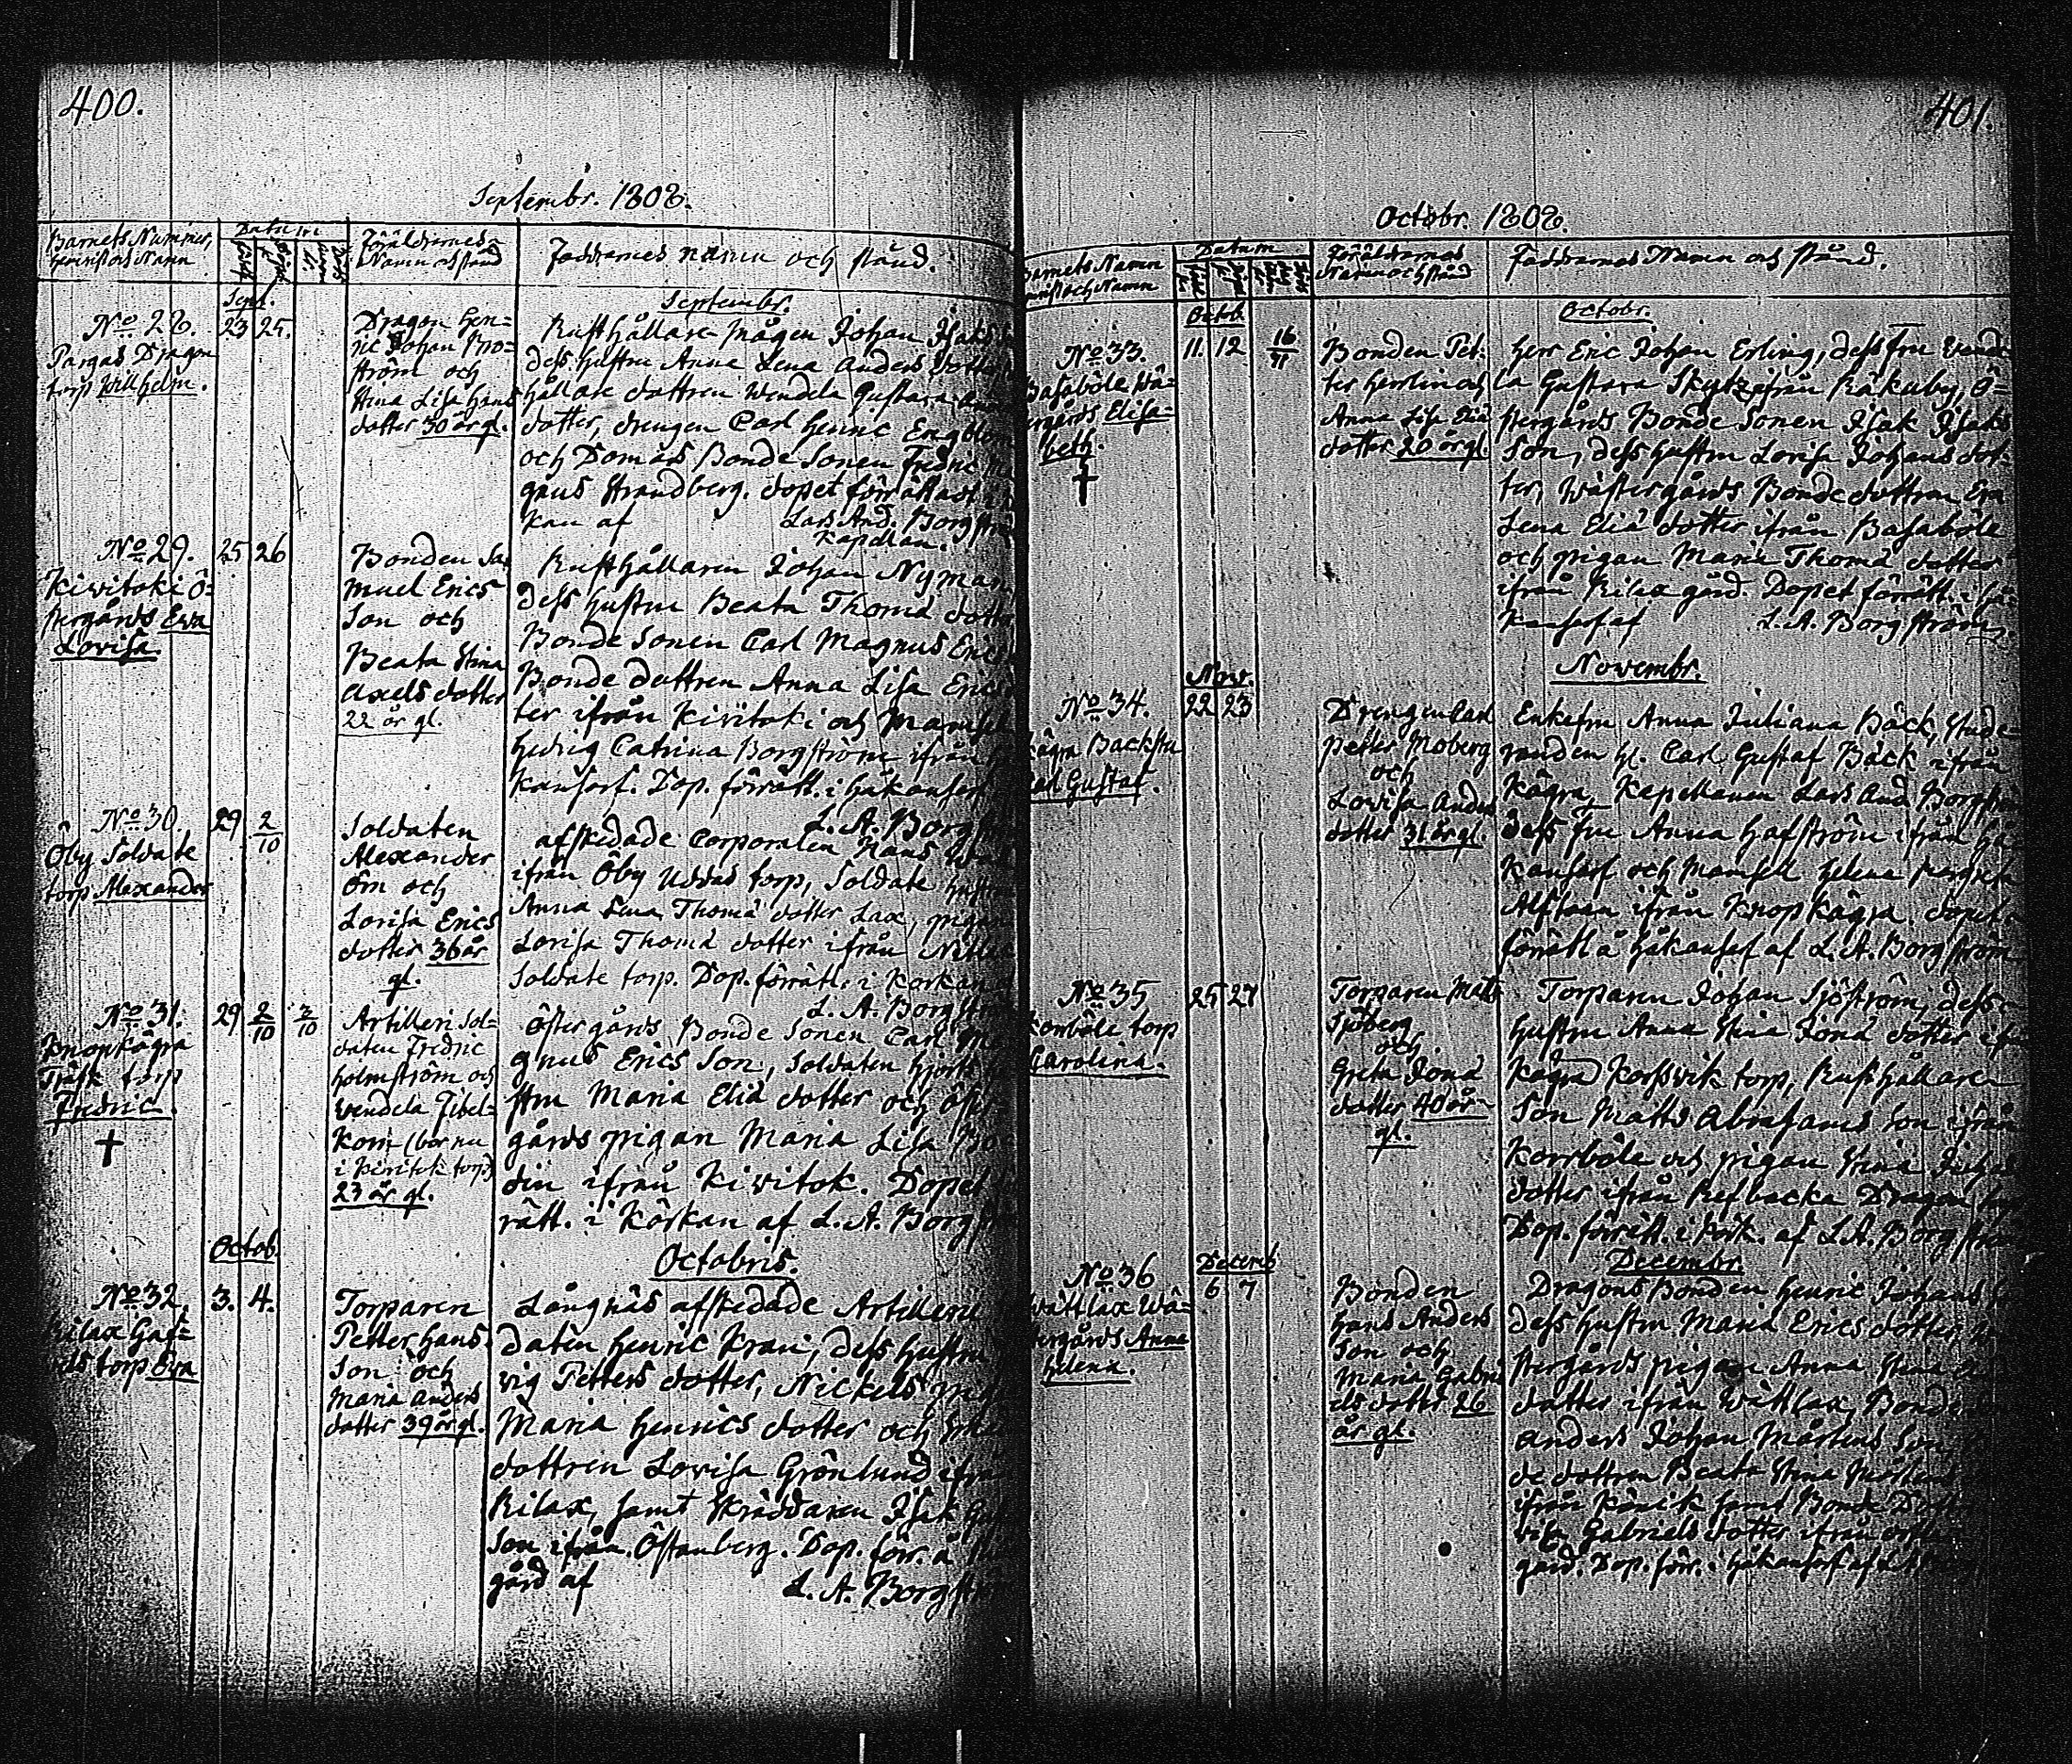 400.
Septembr. 1808.
Barnets Nummer,
hemvist och Namn
Datum
Föräldrarnes
Namn och stånd
Faddrarnes namn och stånd.
Sept.
Septembr.
No 28. 23 25.
Pargas Dragon
torp Willhelm.
Dragon Hen=
ric Johan Bro=
ström och
Stina Lisa Hans
dotter 30 år gl.
Rusthållare mågen Johan Isaks
dess hustru Anna Lena Anders dotter
hållare dottren Wendela Gustava
dotter, drengen Carl Henric Engblom
och Domars Bonde Sonen Fredric
gnus Strandberg. dopet förrättat
kan af Lars And. Borgström
Kapellan.
No 29. 25 26
Kivitoki Ö=
stergårds Ewa
Lovisa.
Bonden Sa
muel Erics
Son och
Beata Stina
Axels dotter
22 år gl.
Rusthållaren Johan Nyman
dess hustru Beata Thomä dotter
Bonde Sonen Carl Magnus Erics
Bonde dottren Anna Lisa Erics
ter ifrån Kivitoki och Mamsell
Hedvig Catrina Borgström ifrån
kansarf. Dop. förrätt. i Håkansarf
L. A. Borgst
No 30. 29 2/10
Öby Soldate
torp Alexander
Soldaten
Alexander
Öm och
Lovisa Erics
dotter 36 år
gl.
afskedade Corporalen Hans
ifrån Öby Uddas torp, Soldate hustrun
Anna Lena Thomä dotter Lax, pigan
Lovisa Thomä dotter ifrån
Soldate torp. Dop. förrätt. i Körkan
L. A. Borgström
No 31. 29 2/10 2/10
Knopkägra
Träsk torp
Fredric.
†
Artilleri Sol=
daten Fredric
Holmström och
Wendela Fibel=
korn (bor nu
i Kivitok torp)
23 år gl.
Östergårds Bonde Sonen Carl Ma
gnus Erics Son, Soldaten Hjorts
stru Maria Eliä dotter och Öster
gårds pigan Maria Lisa
din ifrån Kivitok. Dopet
rätt. i Körkan af L. A. Borgström
Octob.
Octobris.
No 32. 3. 4.
Rilax Gaf=
els torp Eva
Torparen
Petter Hans
Son och
Maria Anders
dotter 39 år gl.
Långnäs afskedade Artilleri
daten Henric Kran, dess hustru
vig Petters dotter, Nickels
Maria Henrics dotter och
dottren Lovisa Grönlund ifrån
Rilax, samt Skräddaren Isak
Son ifrån Östanberg. Dop. förr. å
gård af L. A. Borgström
401.
Octobr. 1808.
Barnets Namn
hemvist och Namn
Datum
Föräldrarnas
Namn och stånd
Faddrarnas Namn och stånd.
Octob.
Octobr.
No 33. 11. 12 16/11
Basaböle Wä=
stergårds Elisa=
beth.
†
Bonden Pet=
ter Herrlin och
Anna Lisa Eliä
dotter 20 år gl.
Herr Eric Johan Erling, dess fru Wende
la Gustava Skytz ifrån Räkuby, Ö=
stergårds Bonde Sonen Isak Isaks
Son, dess hustru Lovisa Johans dot=
ter, Wästergårds Bonde dottren Eva
Lena Eliä dotter ifrån Basaböle
och pigan Maria Thomä dotter
ifrån Rilax gård. Dopet förrätt. i Hå=
kansarf af L. A. Borgström
Nov.
Novembr.
No 34. 22 23
Kägra Backstu
Carl Gustaf.
Drengen Carl
Petter Moberg
och
Lovisa Anders
dotter 31 år gl.
Enkefru Anna Juliana Bäck, Stude
randen H. Carl Gustaf Bäck ifrån
Kägra, Kapellanen Lars And. Borgström
dess fru Anna Hafström ifrån Hå=
kansarf och Mamsell Helena Margreta
Alftan ifrån Knopkägra. dopet
förrätt å Håkansarf af L. A. Borgström
No 35 25 27
Korrböle torp
Carolina.
Torparen Matts
Sjöberg
och
Greta Jonä
dotter 40 år
gl.
Torparen Johan Sjöström, dess
hustru Anna Stina Jonä dotter ifrån
Kägra Korssvik torp, Rusthållare
Son Matts Abrahams Son ifrån
Korrböle och pigan Stina Johans
dotter ifrån Refbacka Dragon torp
Dop. förrätt. i Körk. af L. A. Borgström
Decemb
Decembr.
No 36 6 7
Wättlax Wä=
stergårds Anna
Helena.
Bonden
Hans Anders
Son och
Maria Gabri
els dotter 26
år gl.
Dragons Bonden Henric Johans
dess hustru Maria Erics dotter,
stergårds pigan Anna Stina
dotter ifrån Wättlax, Bonde
Anders Johan Mårtens Son,
de dottren Beata Stina Mårtens
ifrån Könik samt Bonde
visa Gabriels dotter ifrån
gård. Dop. förr. i Håkansarf af L. A.